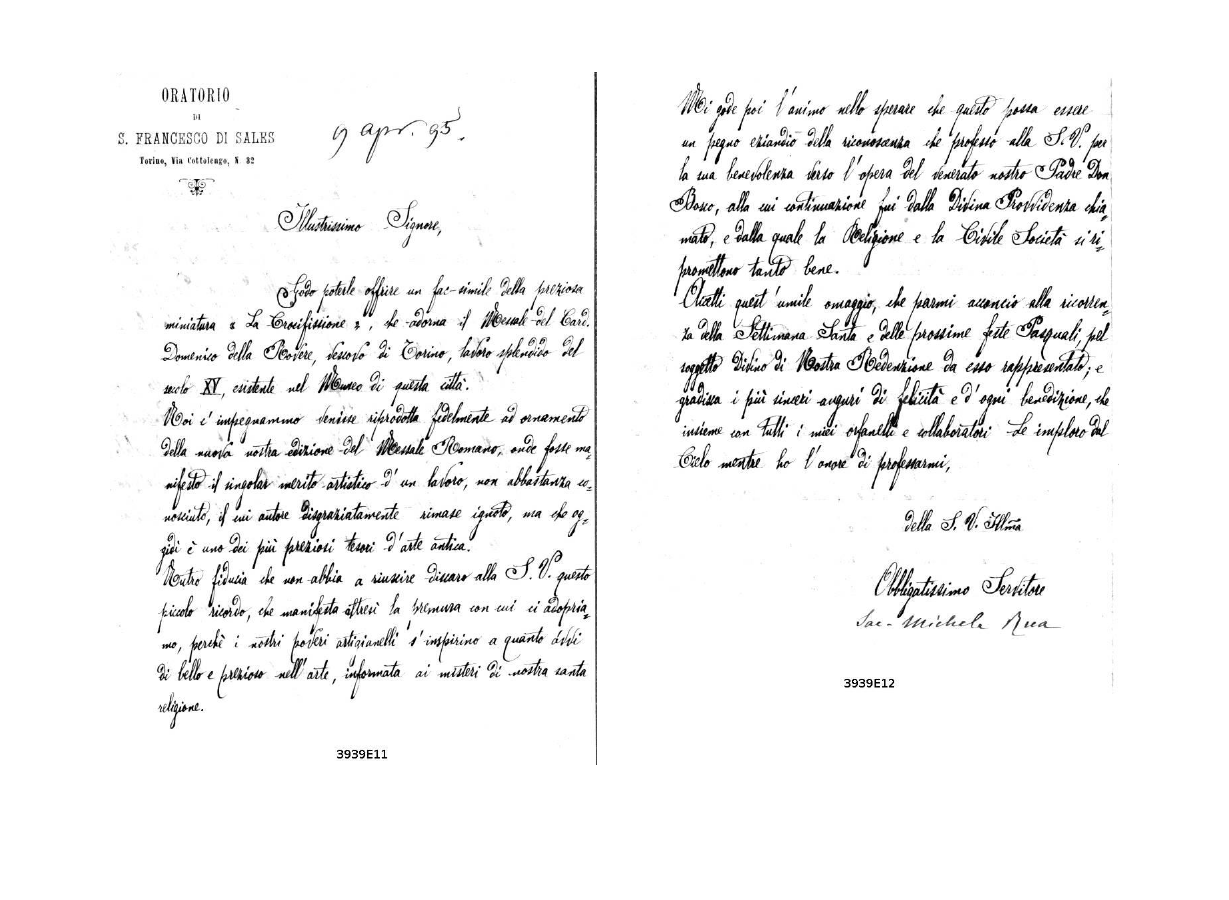 ORATORIO
DI
S. FRANCESCO DI SALES
Torino, Via Cottolengo, N 32
9 apr. 95.
Illustrissimo Signore,
Godo poterle offrire un fac-simile della preziosa
miniatura « La Crocifissione », che adorna il Messale del Card.
Domenico della Rovere, vescovo di Torino, lavoro splendido del
secolo XV, esistente nel Museo di questa città.
Noi c'impegnammo venisse riprodotta fedelmente ad ornamento
della nuova nostra edizione del Messale Romano, onde fosse ma=
nifesto il singolar merito artistico d'un lavoro, non abbastanza co=
nosciuto, il cui autore disgraziatamente rimase ignoto, ma che og=
gidì è uno dei più preziosi tesori d'arte antica.
Nutro fiducia che non abbia a riuscire discaro alla S. V. questo
piccolo ricordo, che manifesta altresì la premura con cui ci adopria=
mo, perchè i nostri poveri artigianelli s'inspirino a quanto avvi
di bello e prezioso nell'arte, informata ai misteri di nostra santa
religione.
3939E11
Mi gode poi l'animo nello sperare che questo possa essere
un pegno eziandio della riconoscenza che professo alla S. V. per
la sua benevolenza verso l'opera del venerato nostro Padre Don
Bosco, alla cui continuazione fui dalla Divina Provvidenza chia=
mato, e dalla quale la Religione e la Civile Società si ri=
promettono tanto bene.
Accetti quest'umile omaggio, che parmi acconcio alla ricorren=
za della Settimana Santa e delle prossime feste Pasquali, pel
soggetto Divino di Nostra Redenzione da esso rappresentato; e
gradisca i più sinceri auguri di felicità e d'ogni benedizione, che
insieme con tutti i miei orfanelli e collaboratori Le imploro dal
Cielo mentre ho l'onore di professarmi,
della S. V. Ill.ma
Obbligatissimo Servitore
Sac. Michele Rua
3939E12